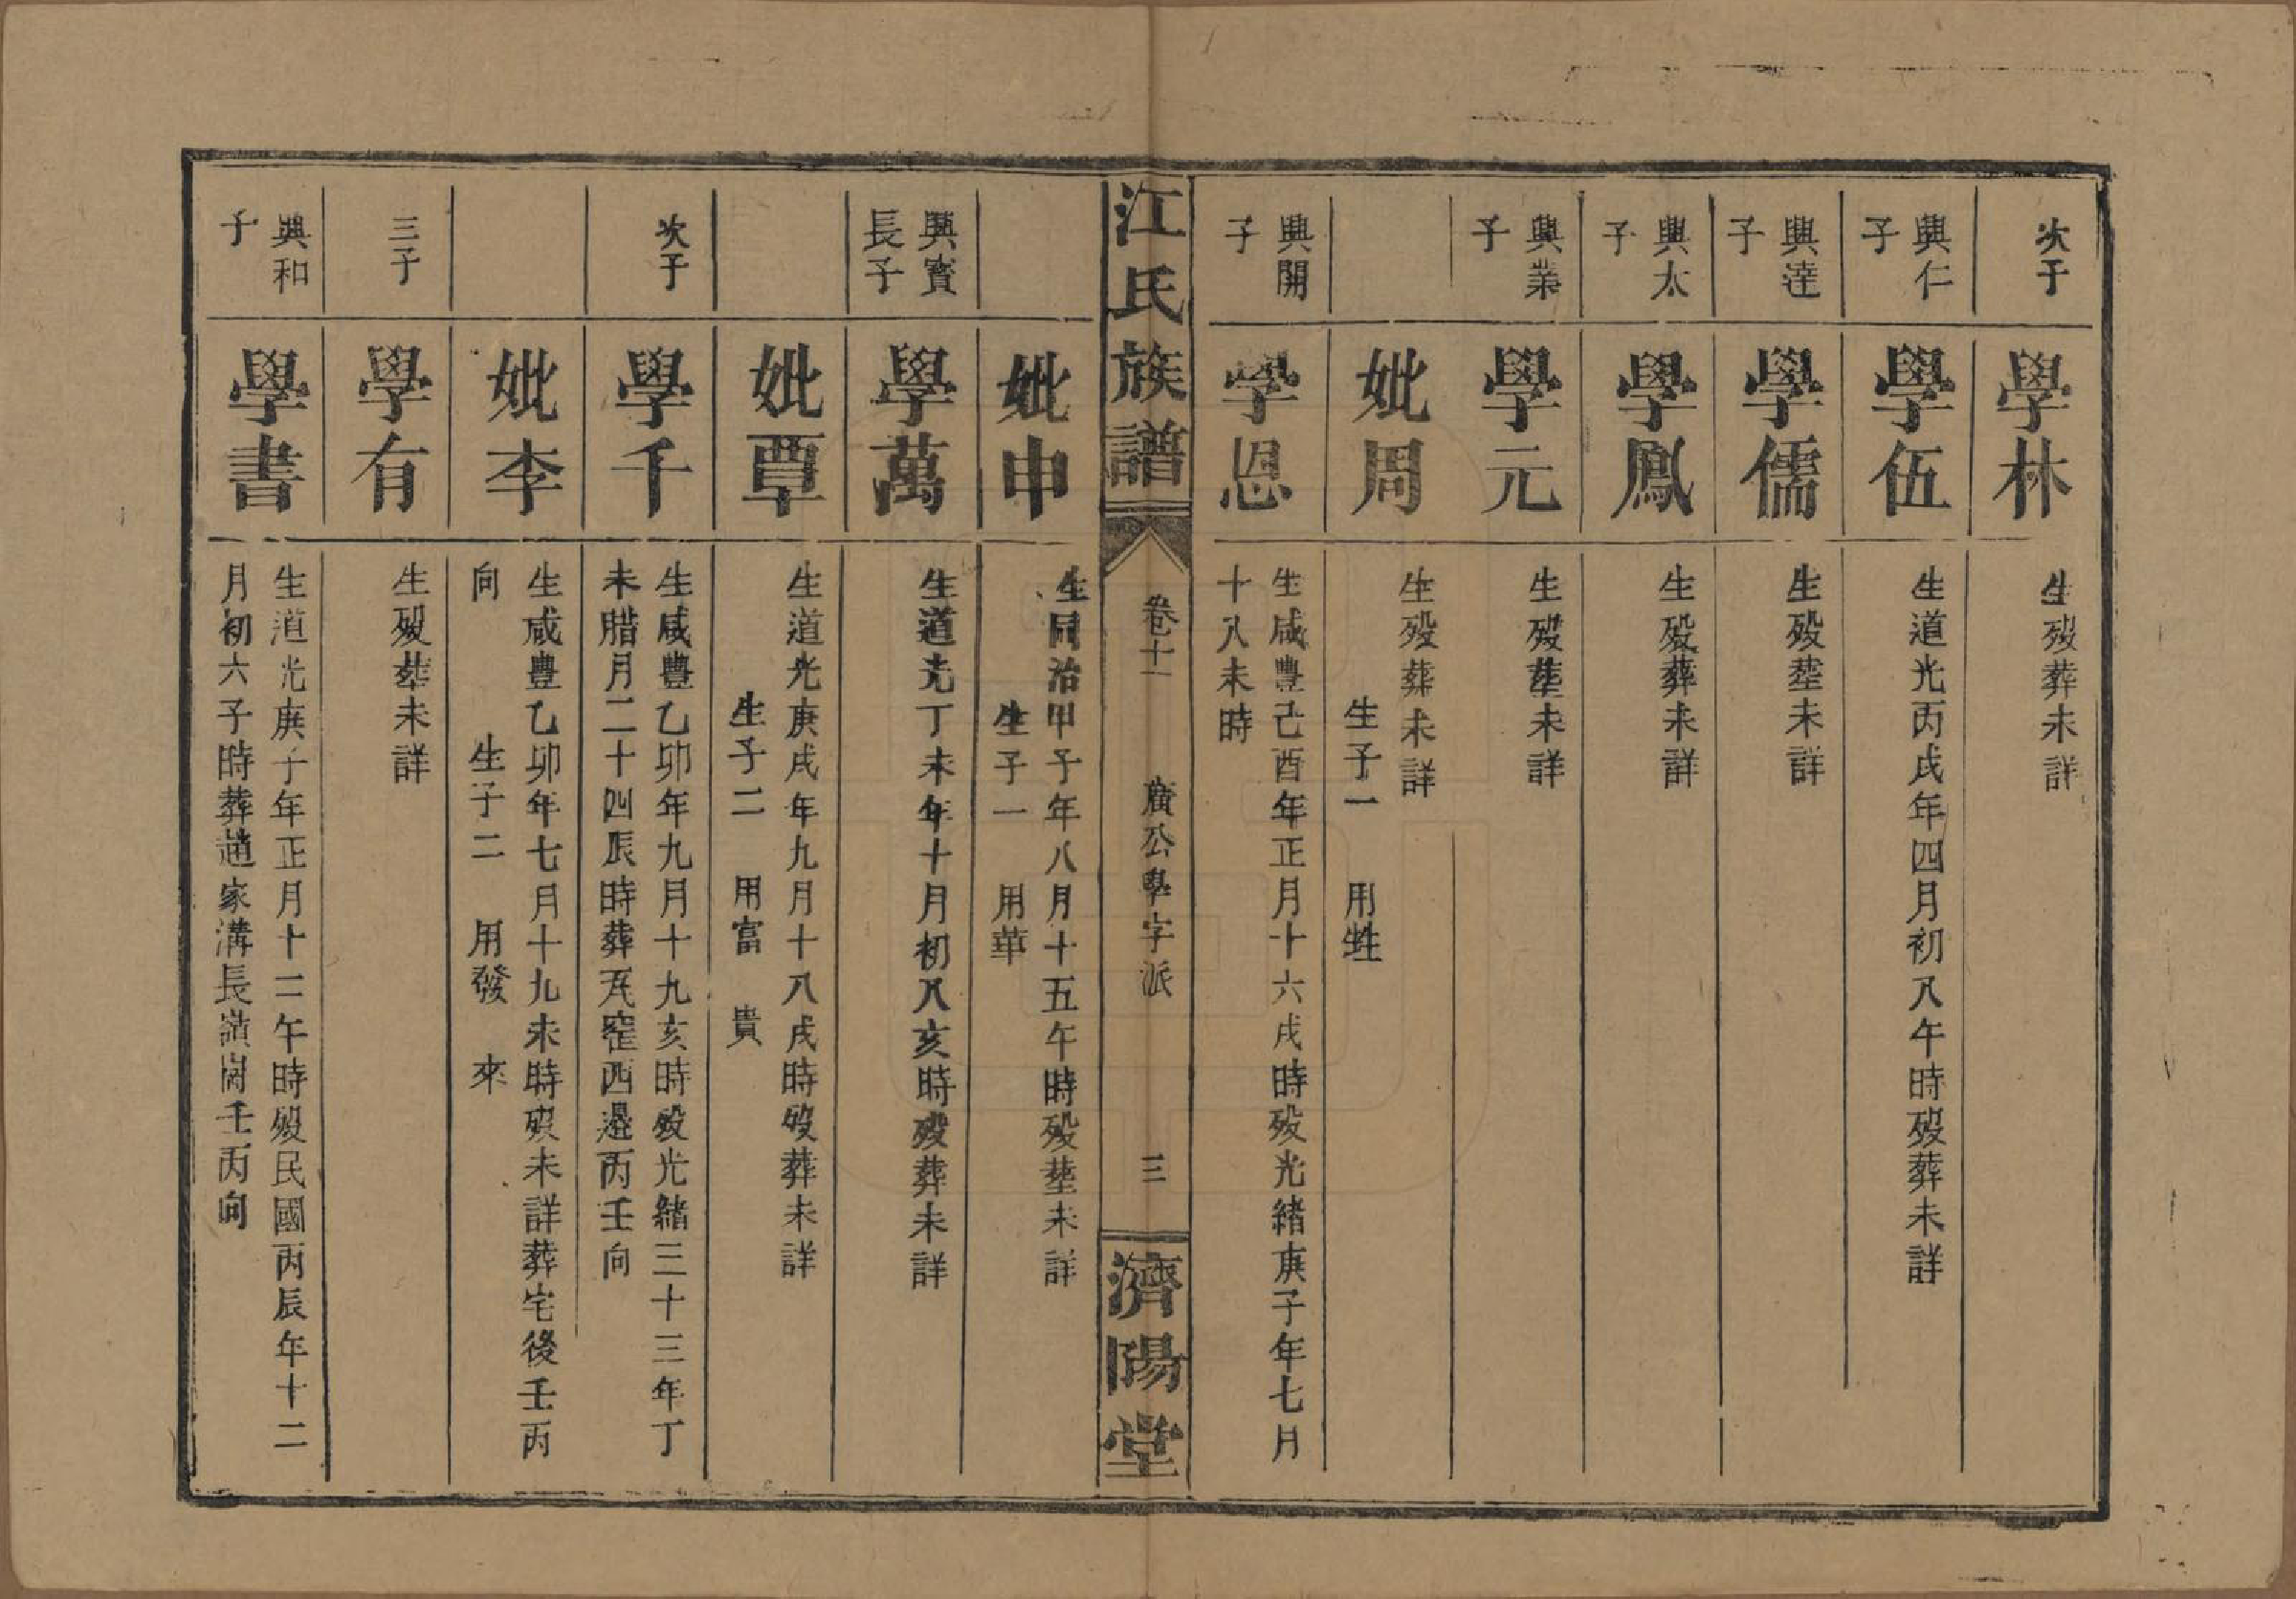 次子
學林
生歿葬未詳
興仁
子
學伍
生道光丙戌年四月初八午時歿葬未詳
興達
子
學儒
生歿塟未詳
興太
子
學鳳
生歿葬未詳
興業
子
學元
生歿塟未詳
妣周
生歿葬未詳
生子一 用甡
興開
子
學恩
生咸豐己酉年正月十六戌時歿光緒庚子年七月
十八未時
江氏族譜
卷十一
廣公學字派
三
濟陽堂
妣申
生同治甲子年八月十五午時歿塟未詳
生子一 用華
興寶
長子
學萬
生道光丁未年十月初八亥時歿葬未詳
妣覃
生道光庚戌年九月十八戌時歿葬未詳
生子二 用富 貴
次子
學千
生咸豐乙卯年九月十九亥時歿光緒三十三年丁
未腊月二十四辰時葬瓦窑西邉丙壬向
妣李
生咸豐乙卯年七月十九未時歿未詳葬宅後壬丙
向 生子二 用發 來
三子
學有
生歿塟未詳
興和
子
學書
生道光庚子年正月十二午時歿民國丙辰年十二
月初六子時葬趙家溝長嶺崗壬丙向